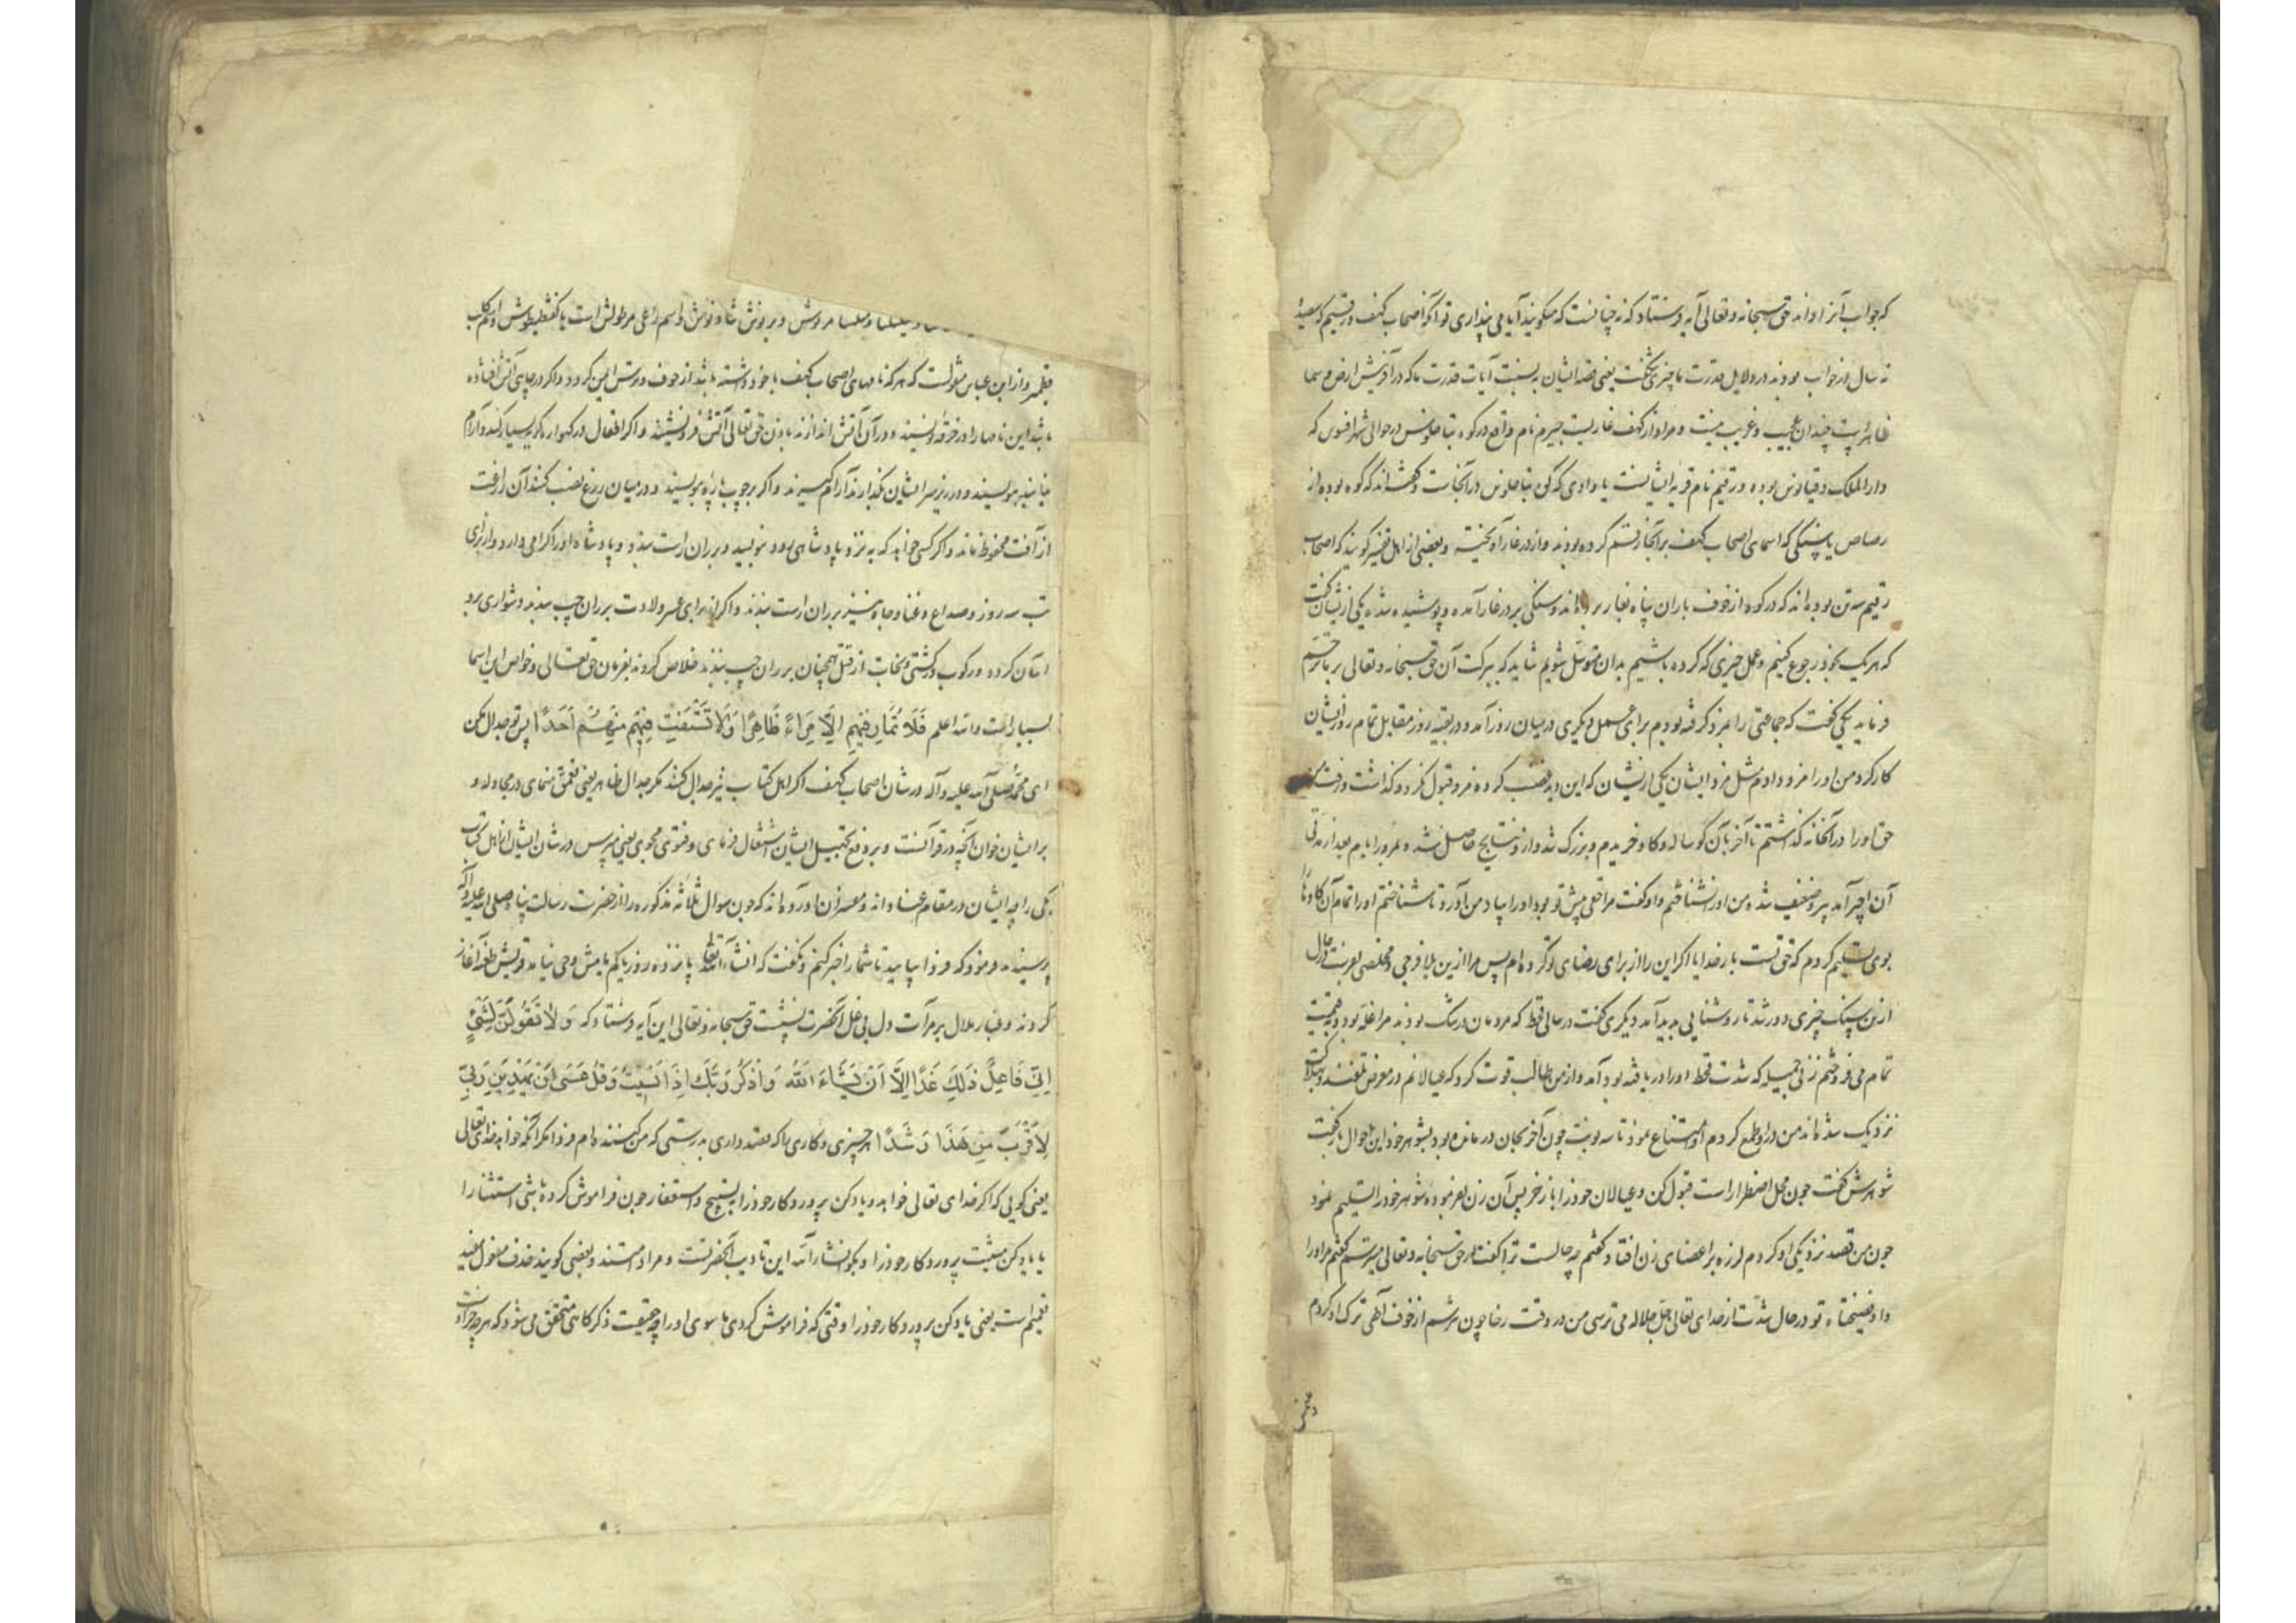 که جواب آنرا داند حق سبحانه و تعالی آیه فرستاد که نه چنانست که میکویند آیا می پنداری تو آنکه اصحاب کهف و رقیم که سیصد
نه سال در خواب بودند در دلایل قدرت ما چیزی شکفت یعنی قصه ایشان به نسبت آیات قدرت ما که در آفرینش ارض و سما
ظاهرست چندان عجیب و غریب نیست و مراد از کهف غاریست جیرم نام واقع در کوه بتاخلوس در حوالی شهر افسوس که
دار الملک دقیانوس بوده و رقیم نام قریه ایشانست یا وادی که کوه بتاخلوس در آنجاست و کفته اند که لوح بوده از
رصاص یا سنکی که اسمای اصحاب کهف بر آنجا رقم کرده بودند و از در غار آویخته و بعضی از اهل تفسیر کویند که اصحاب
رقیم سه تن بوده اند که در کوه از خوف باران پناه بغار برده اند و سنکی بر در غار آمده و پوشیده شده یکی از ایشان کفت
که هر یک بخود رجوع کنیم و عمل خیری که کرده باشیم بدان متوسل شویم شاید که ببرکت آن حق سبحانه و تعالی بر ما ترحم
فرماید یکی کفت که جماعتی را بمزد کرفته بودم برای عمل دیکری در میان روز آمد و در بقیه روز مقابل تمام روز ایشان
کار کرد من او را مزد دادم مثل مزد ایشان یکی از ایشان که این دید غضب کرده مزد قبول نکرد و کذاشت و رفت
حق او را در آنخانه کذاشتم تا آخر بآن کوساله ماده کاو خریدم و بزرک شد و از و نتایج حاصل شد و بمرور ایام بعد از مدتی
آن اجیر آمد پیر و ضعیف شده من او را نشناختم و او کفت مرا حقی پیش تو بود او را بیاد من آورد تا شناختم او را تمام آن کاوها
بوی تسلیم کردم که حق تست بار خدایا اکر این را از برای رضای تو کرده ام پس مرا ازین بلا فرجی و مخلصی
ازین سنک چیزی دور شد تا روشنایی پدید آمد دیکری کفت در سالی قحط که مردمان در تنک بودند مرا غله بود و به قیمت
تمام می فروختم زنی جمیله که شدت قحط او را دریافته بود آمد و از من طلب قوت کرد که عیالانم در معرض تلف شده
نزدیک شده اند من در او طمع کردم او امتناع نمود تا سه نوبت چون آخر بجان درمانده بود بشوهر خود این احوال باز کفت
شوهرش کفت چون محل اضطرار است قبول کن و عیالان خود را باز خر پس آن زن بفرموده شوهر خود را تسلیم نمود
چون من قصد نزدیکی او کردم لرزه بر اعضای زن افتاد کفتم چه حالست ترا کفت از حق سبحانه و تعالی میترسم کفتم مراورا
تو در حال شدت از خدای تعالی جل جلاله می ترسی من در وقت رخا چون نترسم از خوف الهی ترک او کردم
مرنوش و دبرنوش شاذنوش و اسم راعی مرطولش است یا کفشططوش و اسم کلب
قطمیر و از ابن عباس منقولست که هر که نامهای اصحاب کهف با خود داشته باشد از خوف دزدش ایمن کردد و اکر در جایی آتش افتاده
باشد این نامها را در خرقه نویسند و در آن آتش اندازند باذن حق تعالی آتش فرو نشیند و اکر اطفال در کهواره کریه بسیار کنند و آرام
نیابند بنویسند و در زیر سر ایشان بکذارند آرام کیرند و اکر بر چوب پاره بنویسند و در میان زرع نصب کنند آن زراعت
از آفت محفوظ ماند و اکر کسی خواهد که به نزد پادشاهی رود بنویسد و بر ران راست بندد و پادشاه او را کرامی دارد و از برای
تب سه روز و صداع و غنا و جاه نیز بر ران راست بندند و اکر از برای عسر ولادت بر ران چپ بندند دشواری بر وی
آسان کردد و رکوب در کشتی و نجات از قتل همچنان بر ران چپ بندند خلاص کردند بفرمان حق تعالی و خواص این اسما
بسیار است والله اعلم فَلَا تُمَارِ فِيهِمْ إِلَّا مِرَاءً ظَاهِرًا وَلَا تَسْتَفْتِ فِيهِمْ مِنْهُمْ أَحَدًا پس تو جدال مکن
ای محمد صلی الله علیه و آله در شان اصحاب کهف اکر اهل کتاب نیز جدال کنند مکر جدال ظاهر یعنی تعمق منمای در مجادله و
بر ایشان خوان آنچه در قرآنست و بر دفع تجهیل ایشان اشتغال منمای و فتوی مجوی یعنی مپرس در شان ایشان از اهل کتاب
یکی را چه ایشان در مقام عنادند و مفسران آورده اند که چون سوال ثلاثه مذکوره را از حضرت رسالت پناه صلی الله علیه و آله
پرسیدند فرمود که فردا بیایید تا شما را خبر کنم و نکفت که انشاء الله تعالی پانزده روز یا کم یا بیش وحی نیامد قریش طعن آغاز
کردند و غبار ملال بر مرآت دل بی غل آنحضرت نشست حق سبحانه و تعالی این آیه فرستاد که وَلَا تَقُولَنَّ لِشَيْءٍ
إِنِّي فَاعِلٌ ذَٰلِكَ غَدًا إِلَّا أَنْ يَشَاءَ اللَّهُ وَاذْكُرْ رَبَّكَ إِذَا نَسِيتَ وَقُلْ عَسَىٰ أَنْ يَهْدِيَنِ رَبِّي
لِأَقْرَبَ مِنْ هَٰذَا رَشَدًا هر چیزی و کاری را که قصد داری بدرستی که من کننده ام فردا مکر آنکه خواهد خدای تعالی
یعنی کویی که اکر خدای تعالی خواهد و یاد کن پروردکار خود را بتسبیح و استغفار چون فراموش کرده باشی استثنا را
یا یاد کن مشیت پروردکار خود را و بکو انشاءالله این تادیب آنحضرتست و مراد امتند و بعضی کویند حذف مفعول مفید
تعمیم است یعنی یاد کن پروردکار خود را وقتی که فراموش کردی ما سوی او را چه حقیقت ذکر کاهی متحقق می شود که هر چه جز اوست